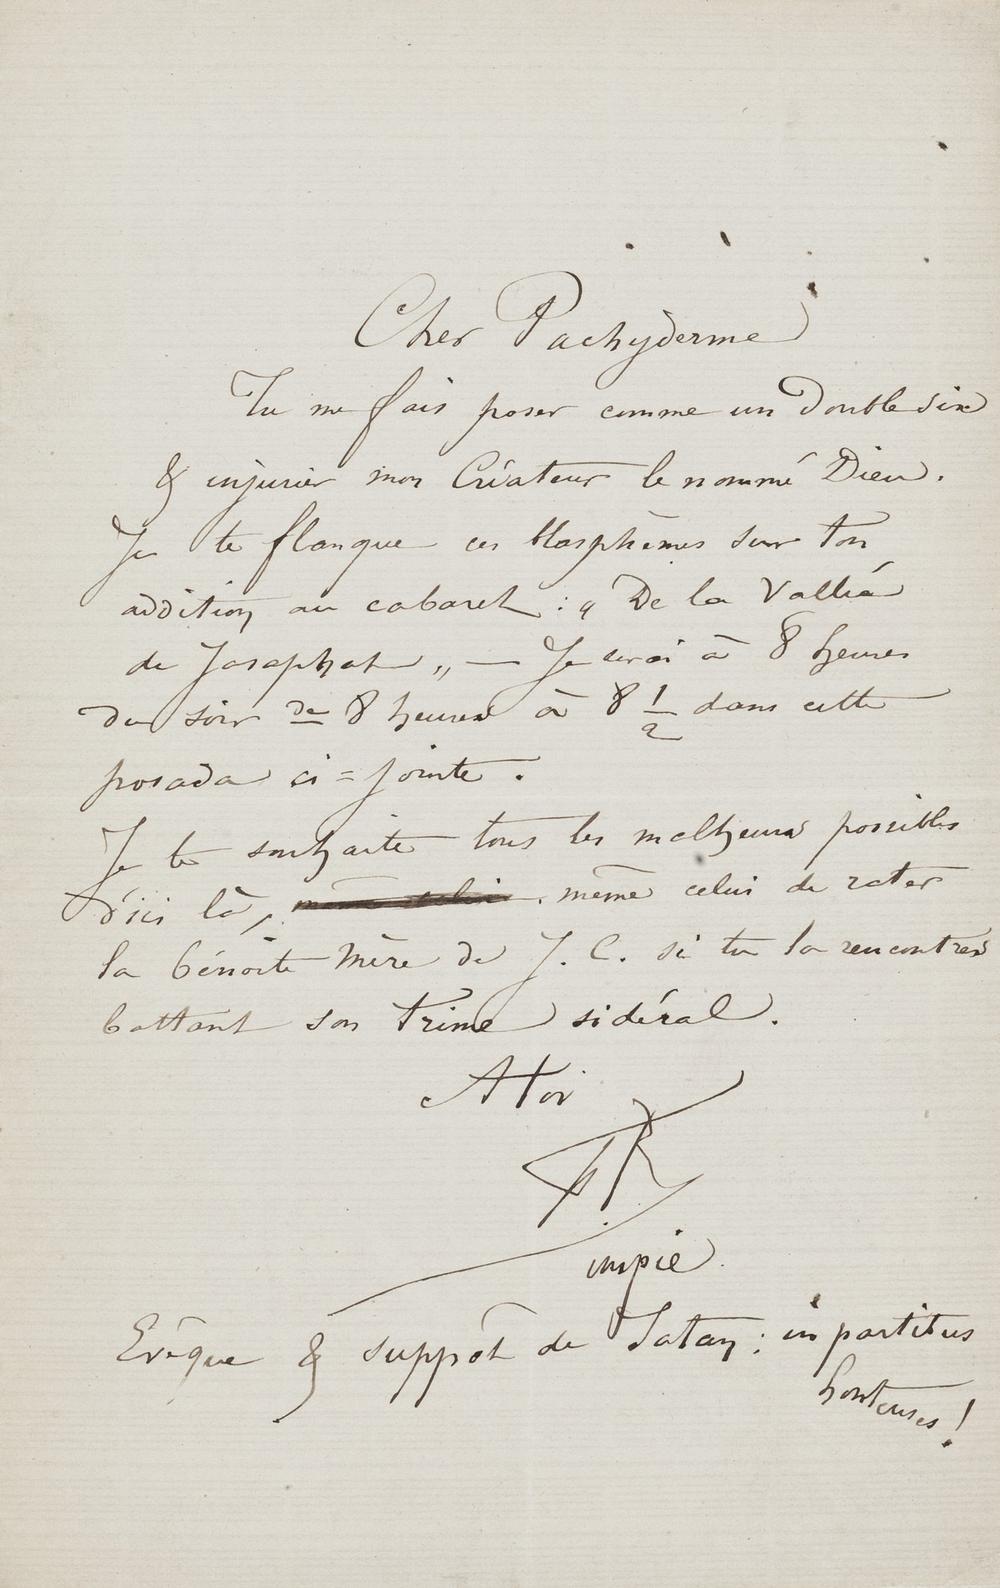 Cher Pachyderme
Tu me fais poser comme un Double six
& injurier mon Créateur le nommé Dieu.
Je te flanque ces blasphèmes sur ton
addition au cabaret : " De la Vallée
de Josaphat „ — Je serai à 8 heures
du soir de 8 heures à 8 1/2 dans cette
posada ci=jointe.
Je te souhaite tous les malheurs possibles
d'ici là, même celui de rater
la bénoite Mère de J. C. si tu la rencontres
battant son trime sidéral.
A toi
FR
impie
Evêque & suppôt de Satan : in partibus
honteuses !